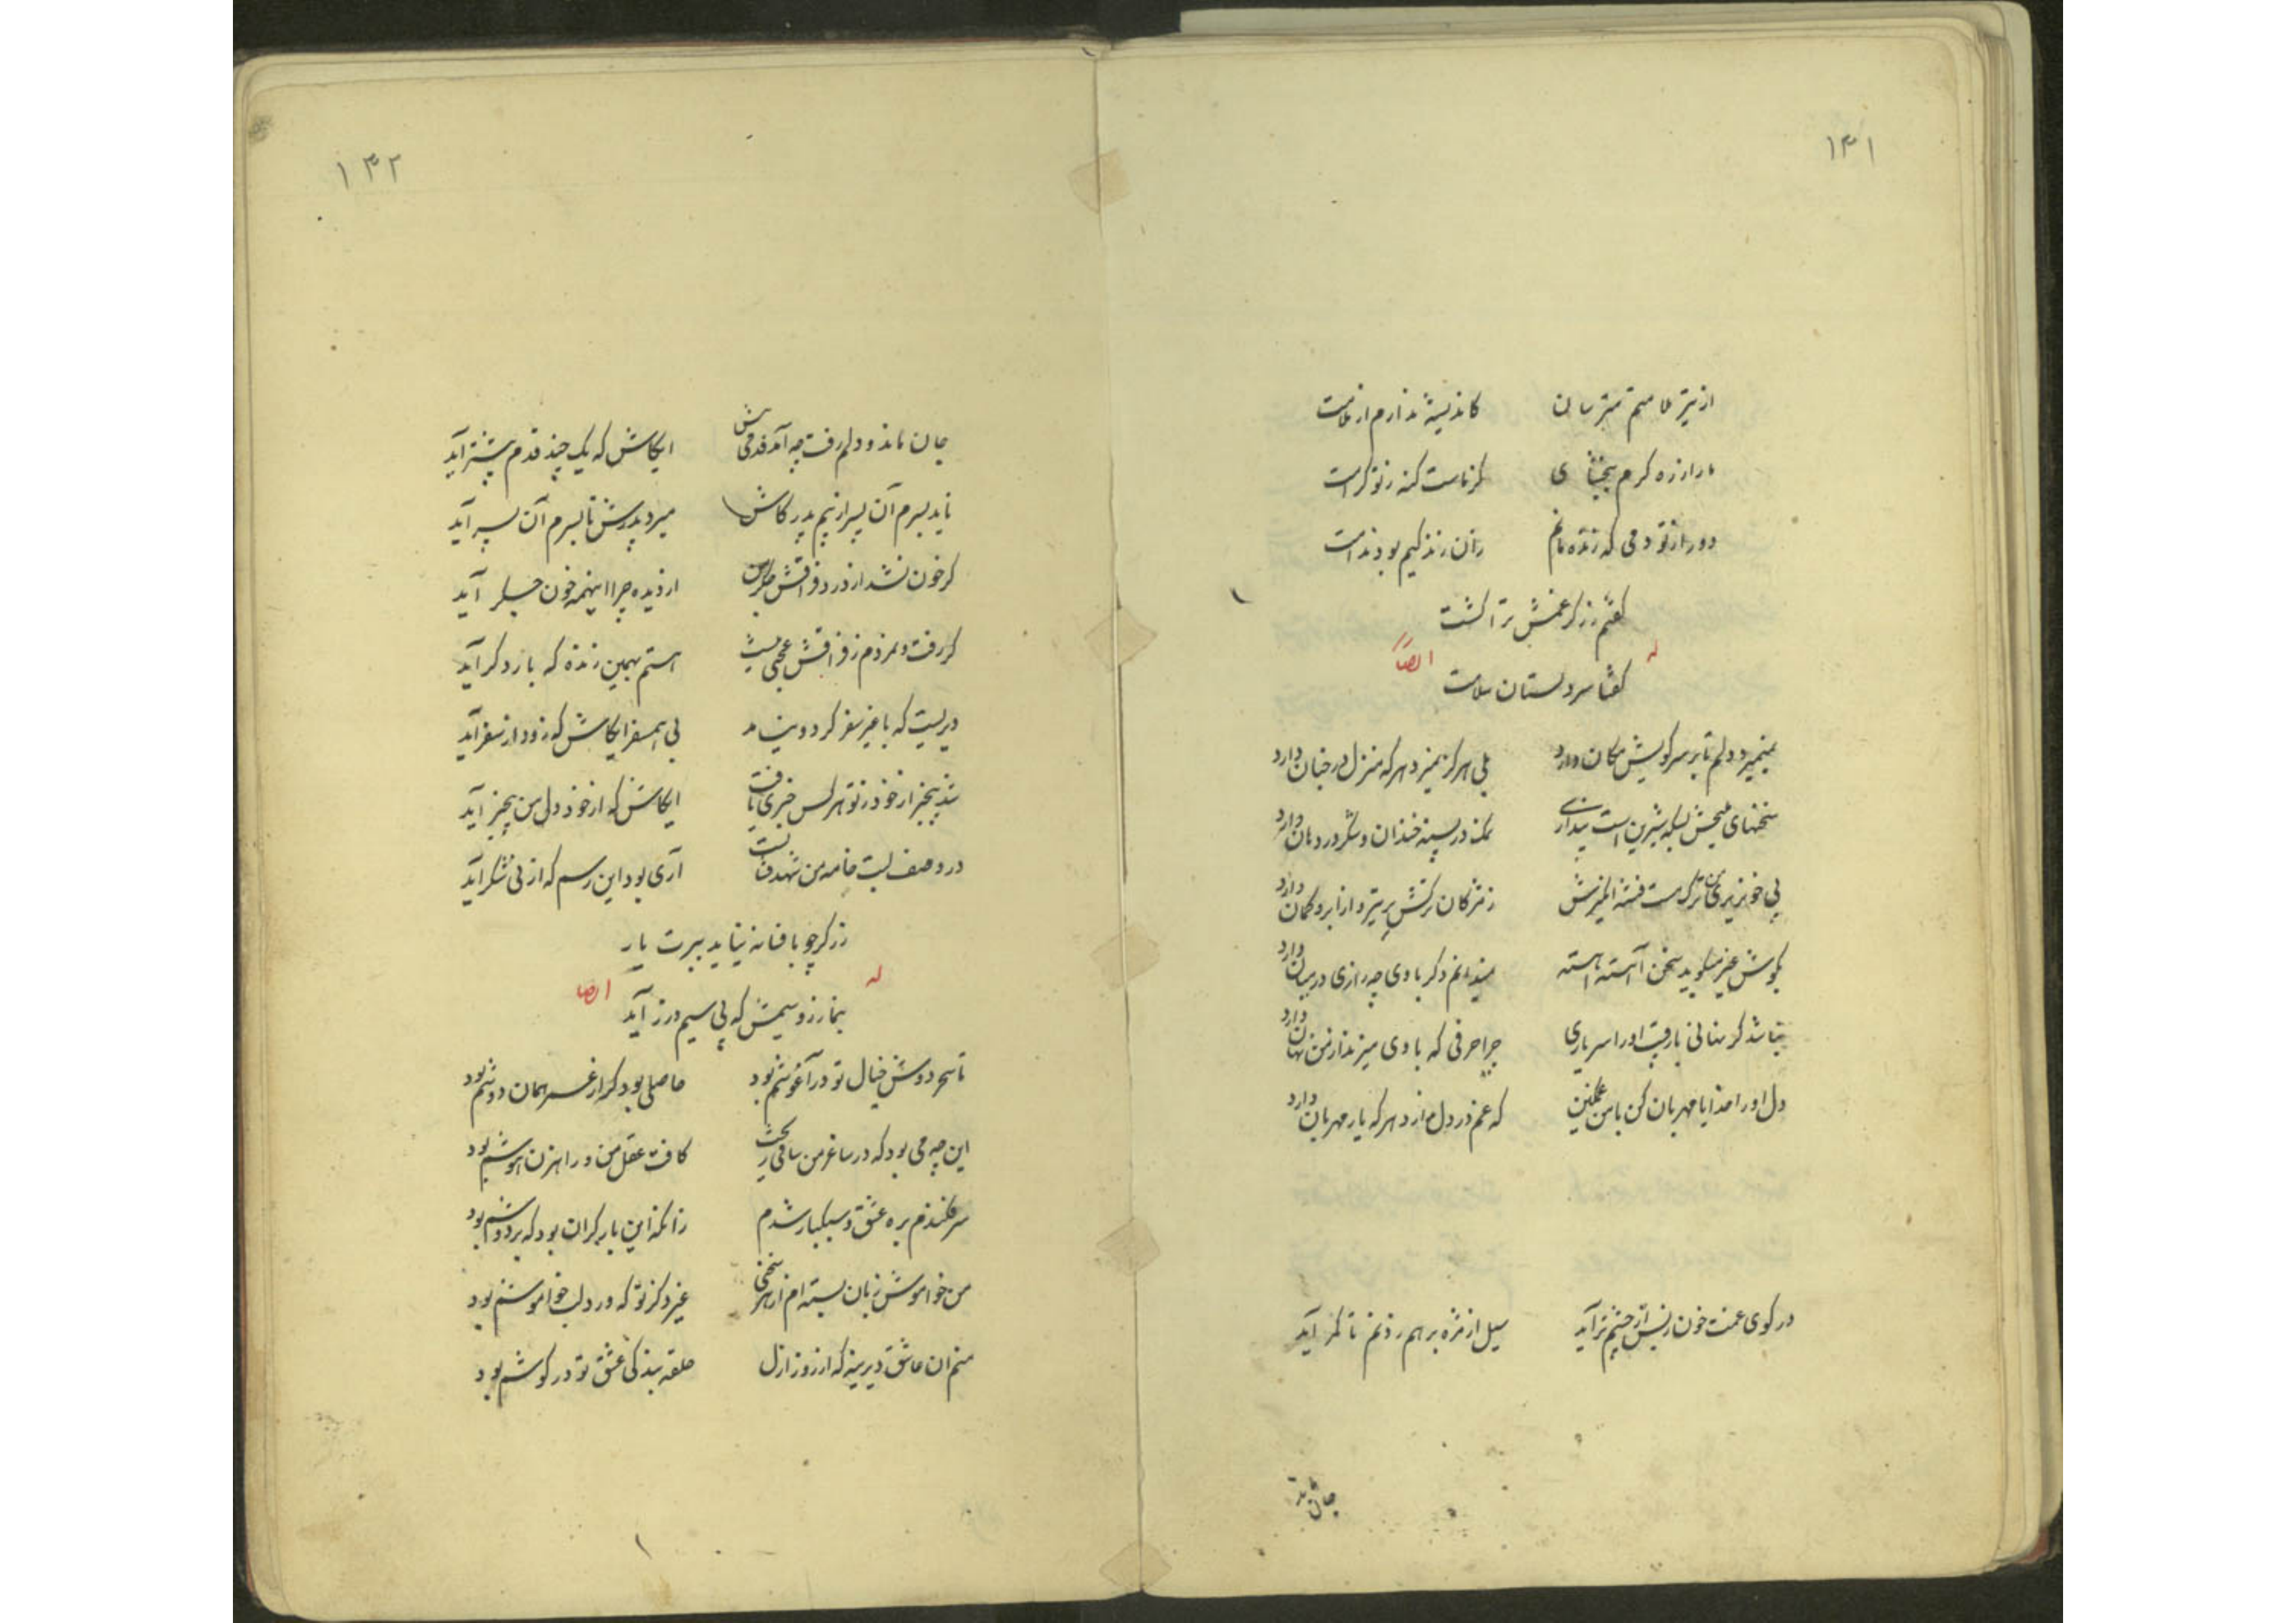 ۱۳۱
از تیر ملامتم مترسان کاندیشه ندارم از ملامت
ما را ز ره کرم ببخشای گر ماست گنه ز تو کرامت
دور از تو دمی که زنده مانم زان زندگیم بود ندامت
گفتم زرگر غمش ترا کشت
گفتا سر دلستان سلامت
له ایضاً
نمیمیرد دلم تا بر سر کویش مکان دارد بلی هرگز نمیرد هر که منزل در جنان دارد
سخنهای ملیحش بسکه شیرین است پنداری نمک در پسته خندان و شکر در دهان دارد
پی خونریزی من ترک مست فتنه انگیزش ز مژگان ترکش پر تیر و از ابرو کمان دارد
بگوش غیر میگوید سخن آهسته آهسته نمیدانم دگر با وی چه رازی در میان دارد
نباشد گر نهانی با رقیب او را سر یاری چرا حرفی که با وی میزند از من نهان دارد
دل او را خدایا مهربان کن با من غمگین که غم در دل ندارد هر که یار مهربان دارد
در کوی غمت خون ز بس از چشم تر آید سیل از مژه برهم زدنم تا کمر آید
جان ماند
۱۳۲
جان ماند و دلم رفت چه آمد قدمی پیش ایکاش که یک چند قدم پیشتر آید
ناید بسرم آن پسر از بیم پدر کاش میرد پدرش تا بسرم آن پسر آید
گر خون نشد از درد فراقش جگر من از دیده چرا اینهمه خون جگر آید
گر رفت و نمردم ز فراقش عجبی نیست هستم بهمین زنده که بار دگر آید
دیریست که با غیر سفر کرد و نیامد بی همسفر ایکاش که زود از سفر آید
شد بیخبر از خود ز تو هر کس خبری یافت ایکاش که از خود دل من بیخبر آید
در وصف لبت خامه من شهد فشانست آری بود این رسم که از نی شکر آید
زرگر چو بافسانه نیاید ببرت یار
بنما زر و سیمش که پی سیم و زر آید
له ایضا
تا سحر دوش خیال تو در آغوشم بود حاصلی بود گر از عمر همان دوشم بود
این چه می بود که در ساغر من ساقی ریخت کافت عقل من و راهزن هوشم بود
سر فکندم بره عشق و سبکبار شدم زانکه این بار گران بود که بر دوشم بود
من خواموش زبان بسته ام از هر سخنی غیر ذکر تو که در دل خواموشم بود
منم ان عاشق دیرینه که از روز ازل حلقه بندگی عشق تو در گوشم بود